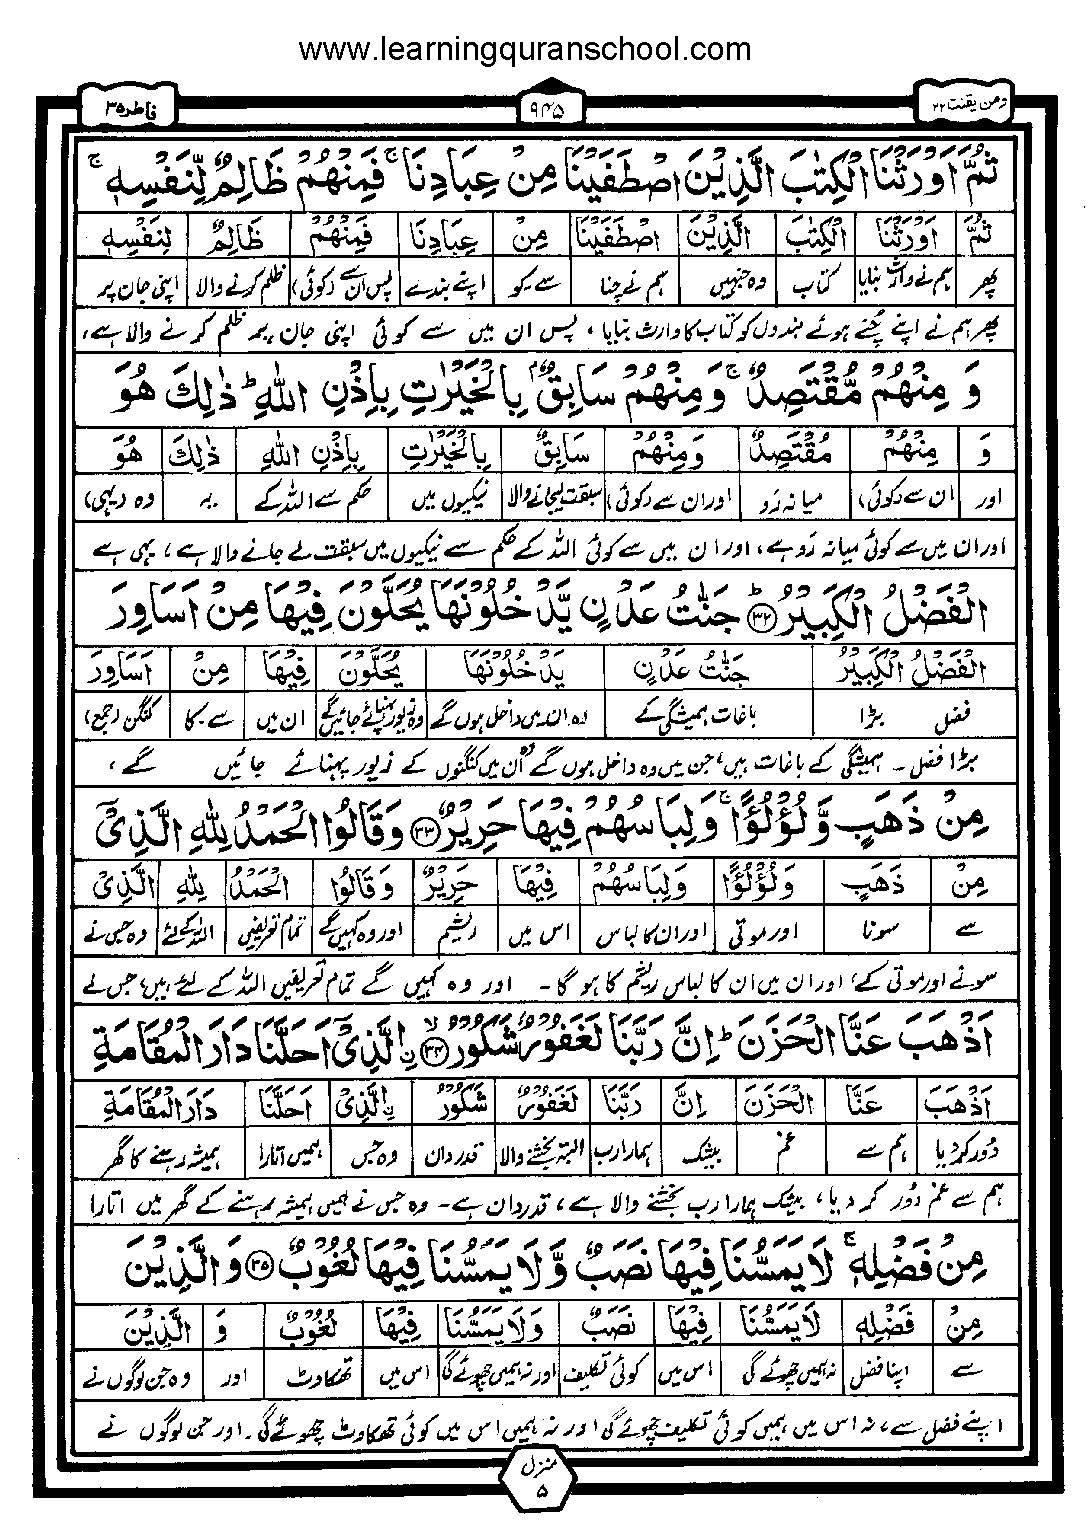 www.learningquranschool.com
ومن یقنت ۲۲
۹۴۵
فاطر ۳۵
ثُمَّ اَوْرَثْنَا الْكِتٰبَ الَّذِیْنَ اصْطَفَیْنَا مِنْ عِبَادِنَا ۚ فَمِنْهُمْ ظَالِمٌ لِّنَفْسِهٖ ۚ
ثُمَّ اَوْرَثْنَا الْكِتٰبَ الَّذِیْنَ اصْطَفَیْنَا مِنْ عِبَادِنَا فَمِنْهُمْ ظَالِمٌ لِنَفْسِهٖ
پھر ہم نے وارث بنایا کتاب وہ جنہیں ہم نے چنا سے۔کو اپنے بندے پس ان سے (کوئی) ظلم کرنے والا اپنی جان پر
پھر ہم نے اپنے چُنے ہوئے بندوں کو کتاب کا وارث بنایا، پس ان میں سے کوئی اپنی جان پر ظلم کرنے والا ہے،
وَ مِنْهُمْ مُّقْتَصِدٌ ۚ وَمِنْهُمْ سَابِقٌۢ بِالْخَیْرٰتِ بِاِذْنِ اللّٰهِ ؕ ذٰلِكَ هُوَ
وَ مِنْهُمْ مُقْتَصِدٌ وَمِنْهُمْ سَابِقٌ بِالْخَیْرٰتِ بِاِذْنِ اللّٰهِ ذٰلِكَ هُوَ
اور ان سے (کوئی) میانہ رَو اور ان سے (کوئی) سبقت لیجانے والا نیکیوں میں حکم سے اللہ کے یہ وہ (یہی)
اور ان میں سے کوئی میانہ رَو ہے، اور ان میں سے کوئی اللہ کے حکم سے نیکیوں میں سبقت لے جانے والا ہے، یہی ہے
الْفَضْلُ الْكَبِیْرُ ؕ ۳۲ جَنّٰتُ عَدْنٍ یَّدْخُلُوْنَهَا یُحَلَّوْنَ فِیْهَا مِنْ اَسَاوِرَ
الْفَضْلُ الْكَبِیْرُ جَنّٰتُ عَدْنٍ یَدْخُلُوْنَهَا یُحَلَّوْنَ فِیْهَا مِنْ اَسَاوِرَ
فضل بڑا باغات ہمیشگی کے وہ ان میں داخل ہوں گے وہ زیور پہنائے جائیں گے ان میں سے۔کا کنگن (جمع)
بڑا فضل ۔ ہمیشگی کے باغات ہیں، جن میں وہ داخل ہوں گے اُن میں کنگنوں کے زیور پہنائے جائیں گے،
مِنْ ذَهَبٍ وَّلُؤْلُؤًا ۚ وَلِبَاسُهُمْ فِیْهَا حَرِیْرٌ ۳۳ وَقَالُوا الْحَمْدُ لِلّٰهِ الَّذِیْۤ
مِنْ ذَهَبٍ وَلُؤْلُؤًا وَلِبَاسُهُمْ فِیْهَا حَرِیْرٌ وَقَالُوا الْحَمْدُ لِلّٰهِ الَّذِیْۤ
سے سونا اور موتی اور ان کا لباس اس میں ریشم اور وہ کہیں گے تمام تعریفیں اللہ کے لئے وہ جس نے
سونے اور موتی کے، اور ان میں ان کا لباس ریشم کا ہو گا۔ اور وہ کہیں گے تمام تعریفیں اللہ کے لئے ہیں، جس نے
اَذْهَبَ عَنَّا الْحَزَنَ ؕ اِنَّ رَبَّنَا لَغَفُوْرٌ شَكُوْرُ ۙ ۳۴ ۨالَّذِیْۤ اَحَلَّنَا دَارَ الْمُقَامَةِ
اَذْهَبَ عَنَّا الْحَزَنَ اِنَّ رَبَّنَا لَغَفُوْرٌ شَكُوْرُ ۨالَّذِیْۤ اَحَلَّنَا دَارَ الْمُقَامَةِ
دُور کر دیا ہم سے غم بیشک ہمارا رب البتہ بخشنے والا قدردان وہ جس ہمیں اتارا ہمیشہ رہنے کا گھر
ہم سے غم دُور کر دیا، بیشک ہمارا رب بخشنے والا ہے، قدردان ہے۔ وہ جس نے ہمیں ہمیشہ رہنے کے گھر میں اتارا
مِنْ فَضْلِهٖ ۚ لَا یَمَسُّنَا فِیْهَا نَصَبٌ وَّلَا یَمَسُّنَا فِیْهَا لُغُوْبٌ ۳۵ وَالَّذِیْنَ
مِنْ فَضْلِهٖ لَا یَمَسُّنَا فِیْهَا نَصَبٌ وَلَا یَمَسُّنَا فِیْهَا لُغُوْبٌ وَ الَّذِیْنَ
سے اپنا فضل نہ ہمیں چھوئے گی اس میں کوئی تکلیف اور نہ ہمیں چھوئے گی اس میں تھکاوٹ اور وہ جن لوگوں نے
اپنے فضل سے، نہ اس میں ہمیں کوئی تکلیف چھوئے گی اور نہ ہمیں اس میں کوئی تھکاوٹ چھوئے گی۔ اور جن لوگوں نے
منزل ۵